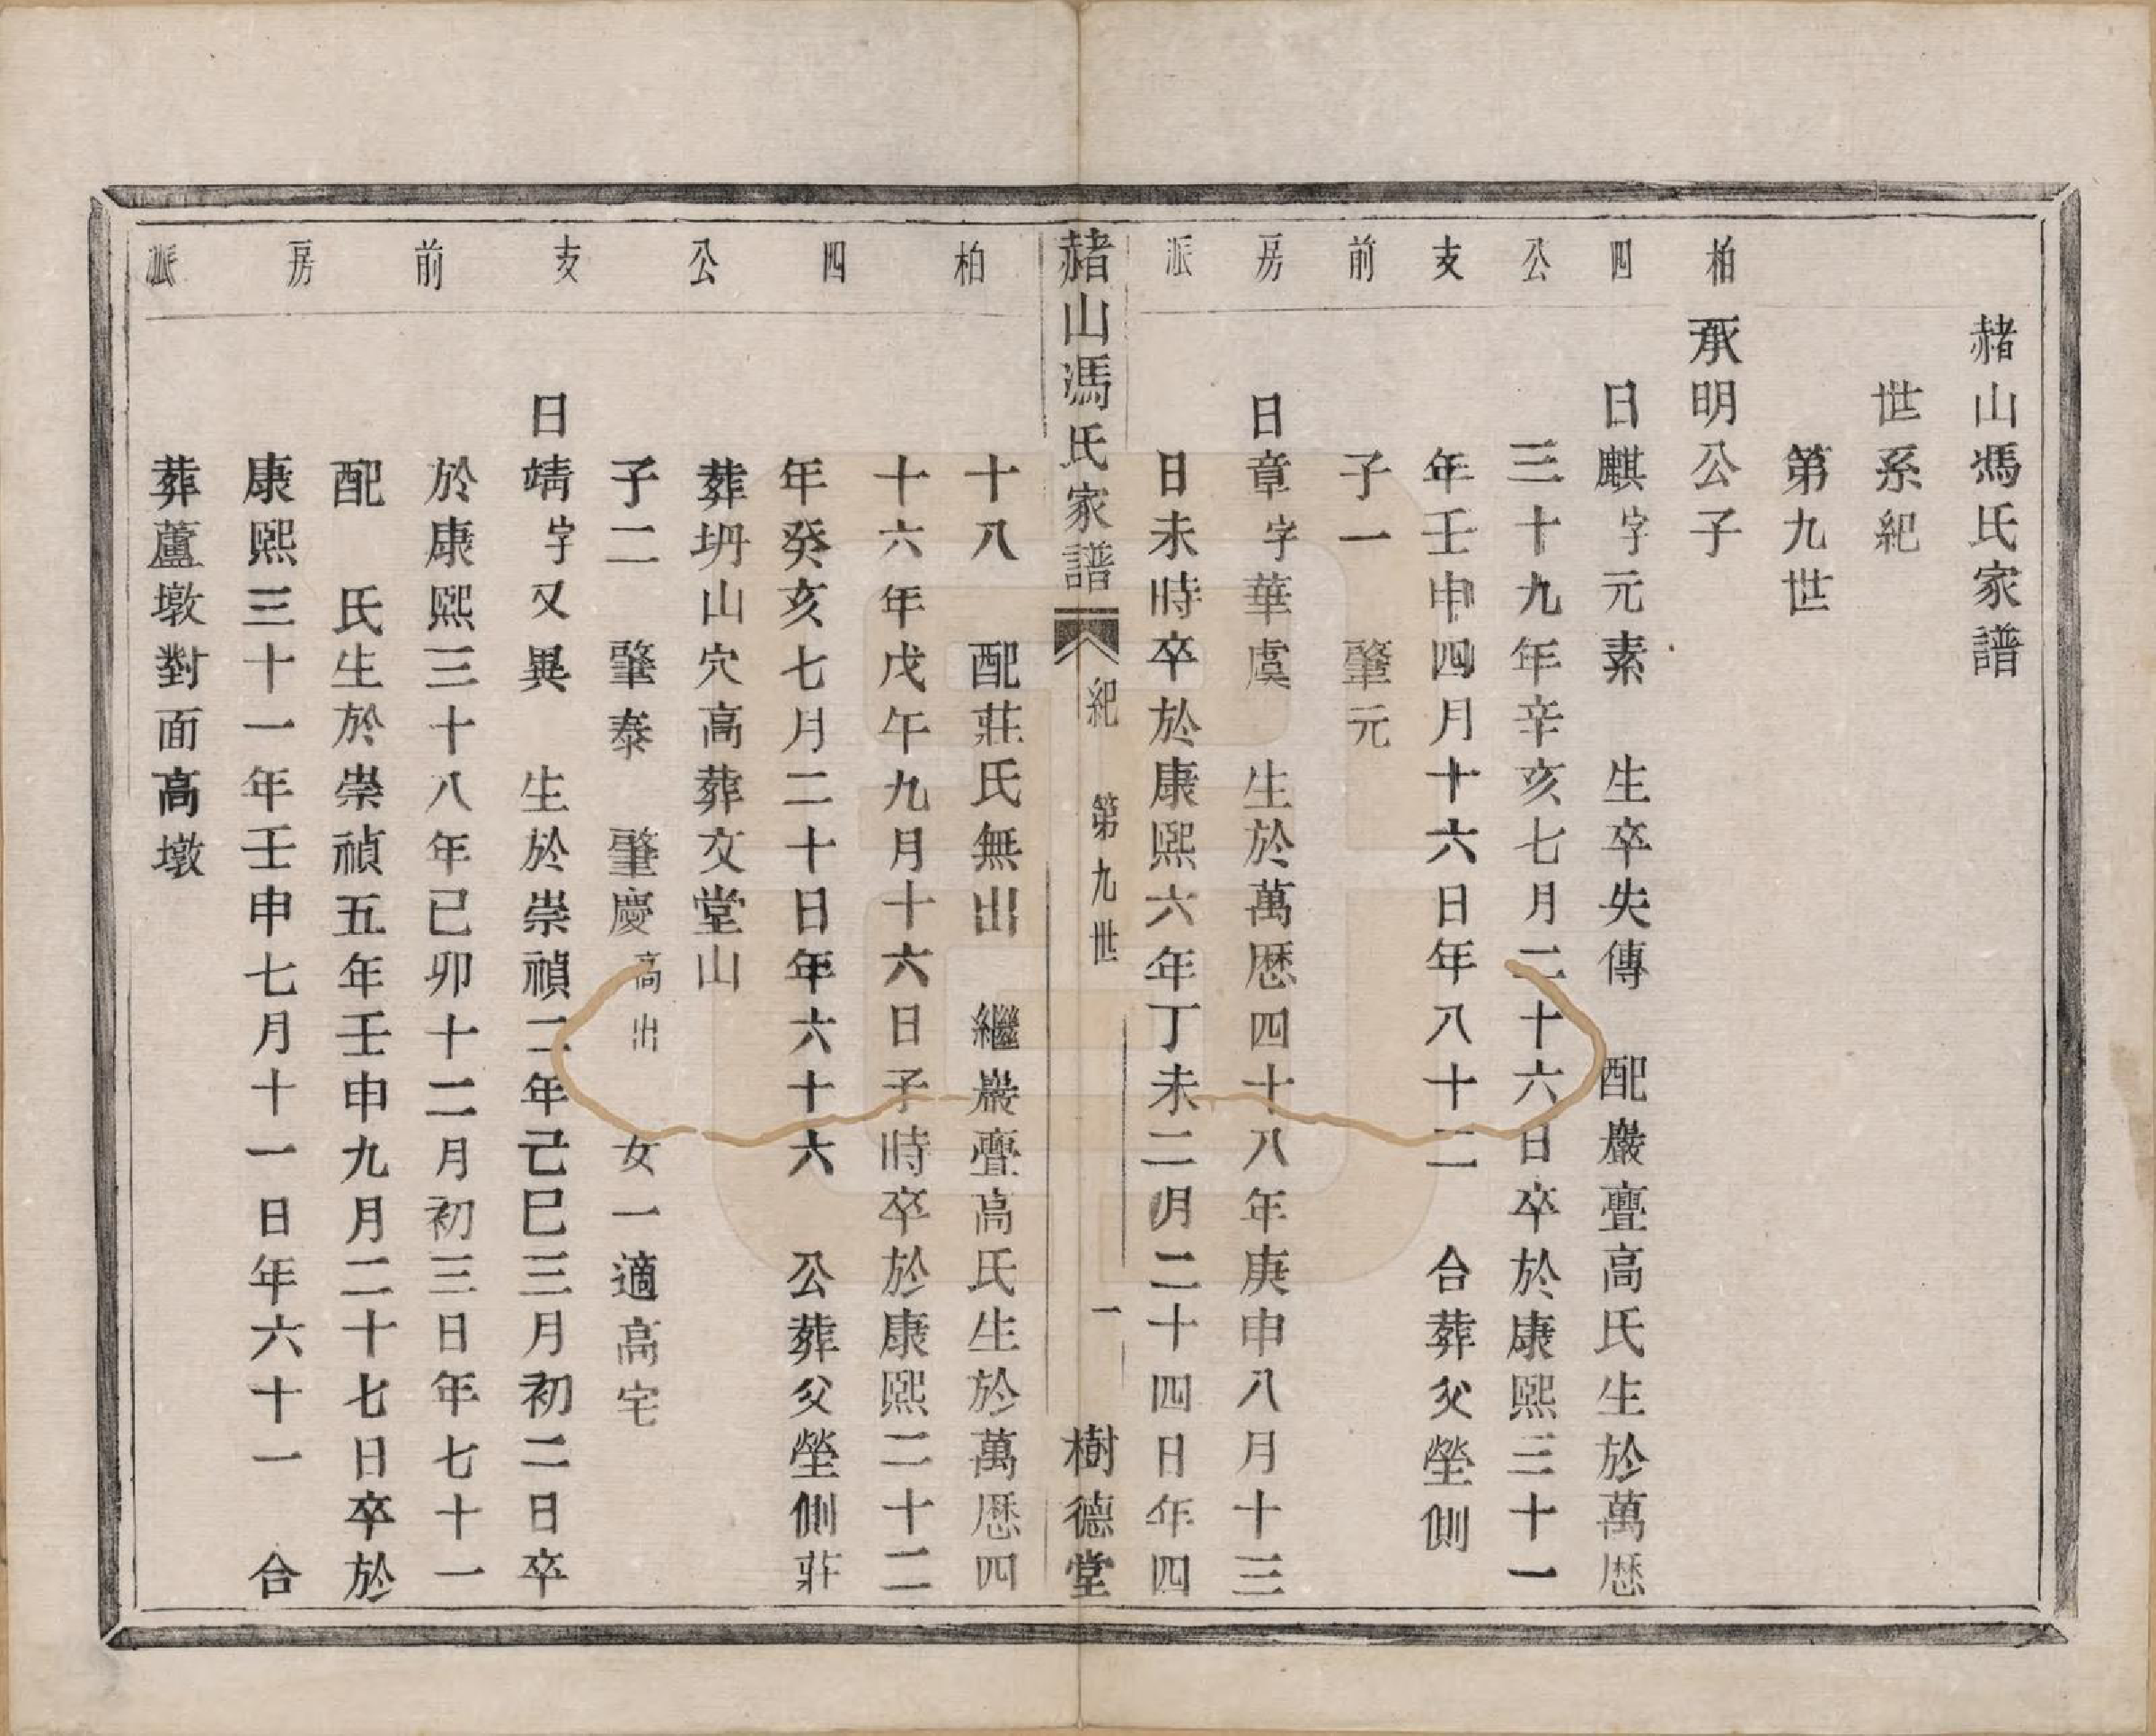 赭山馮氏家譜
世系紀
第九世
柏四公支前房派
承明公子
日麒字元素 生卒失傳 配巖亹高氏生於萬厯
三十九年辛亥七月二十六日卒於康熙三十一
年壬申四月十六日年八十二 合葬父塋側
子一 肇元
日章字華虞 生於萬厯四十八年庚申八月十三
日未時卒於康熙六年丁未二月二十四日年四
赭山馮氏家譜 紀 第九世 一 樹德堂
柏四公支前房派
十八 配莊氏無出 繼巖亹高氏生於萬厯四
十六年戊午九月十六日子時卒於康熙二十二
年癸亥七月二十日年六十六 公葬父塋側莊
葬坍山穴高葬文堂山
子二 肇泰 肇慶高出 女一適高宅
日靖字又異 生於崇禎二年己巳三月初二日卒
於康熙三十八年己卯十二月初三日年七十一
配 氏生於崇禎五年壬申九月二十七日卒於
康熙三十一年壬申七月十一日年六十一 合
葬蘆墩對面高墩